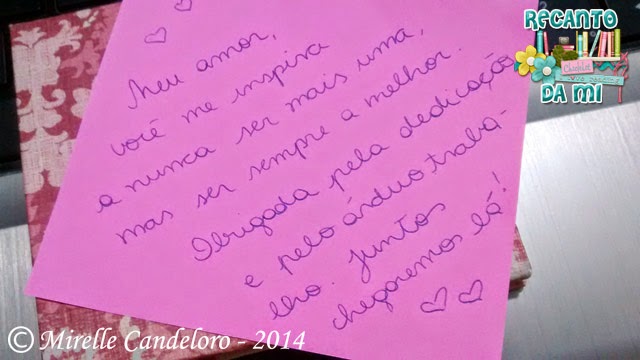 RECANTO
DA MI
Meu amor,
você me inspira
a nunca ser mais uma,
mas ser sempre a melhor.
Obrigada pela dedicação
e pelo árduo traba-
lho. Juntos
chegaremos lá!
© Mirelle Candeloro - 2014